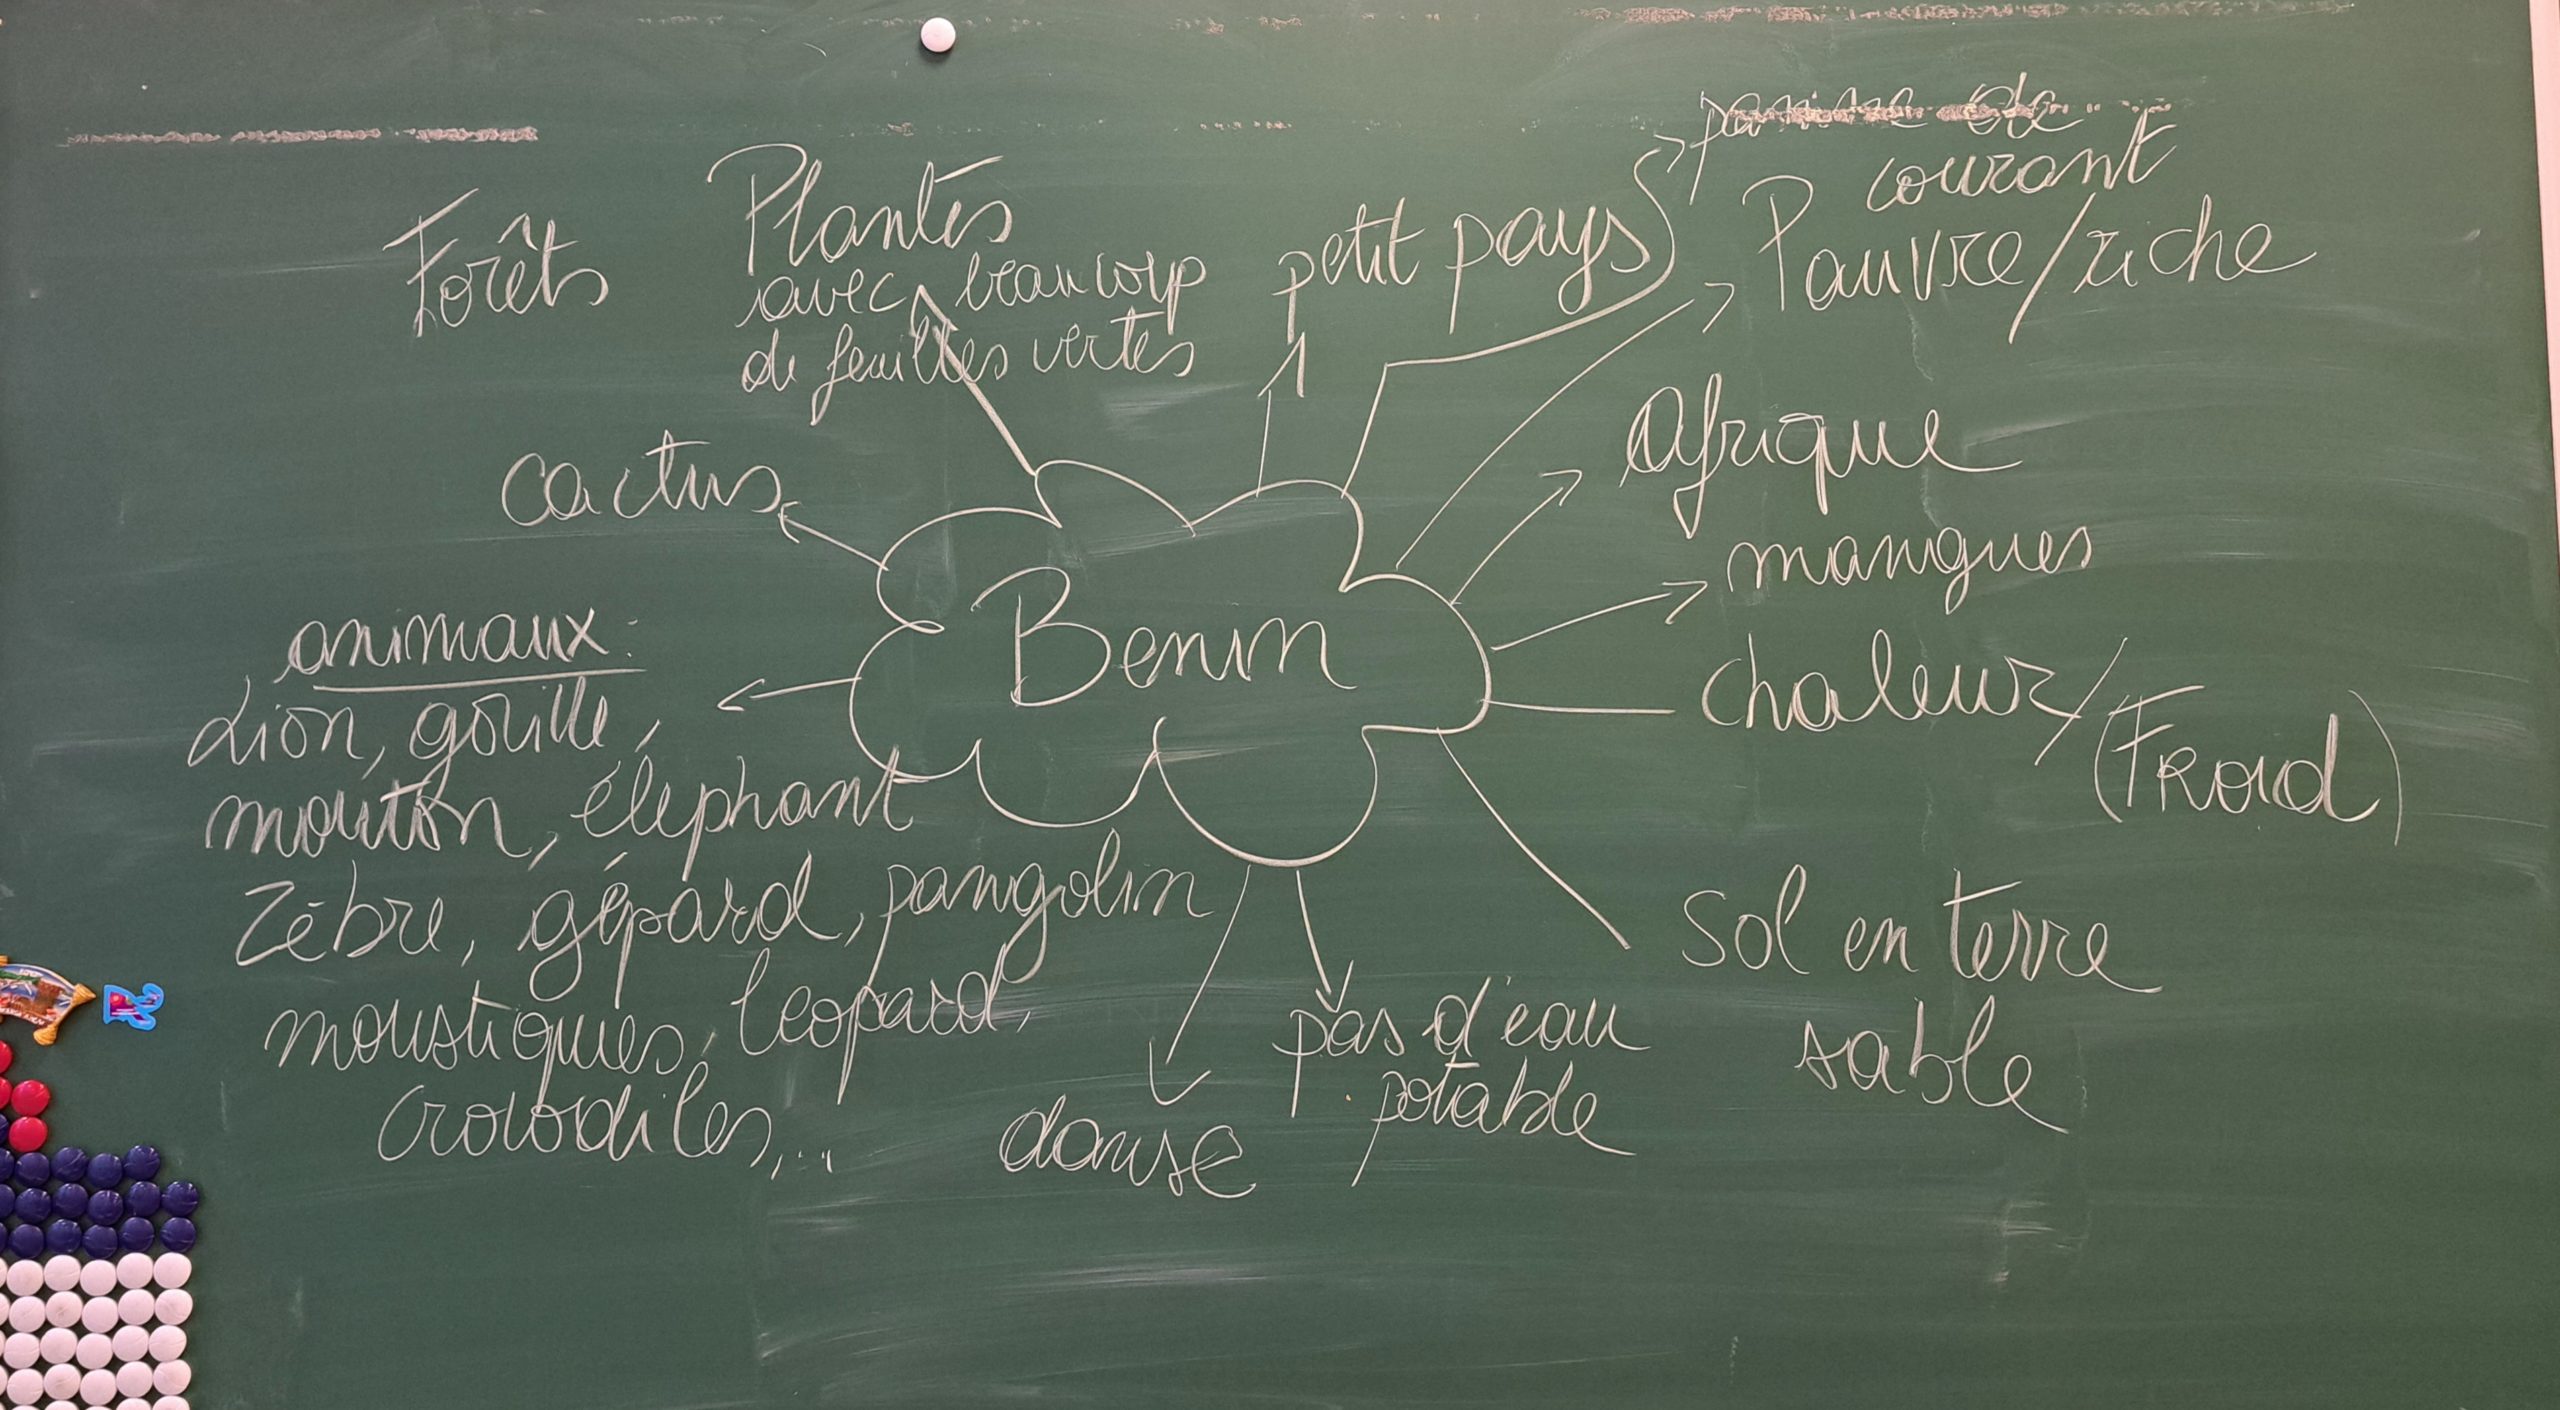 Forêts
Plantes
avec beaucoup
de feuilles vertes
petit pays
panne de
courant
Pauvre/riche
cactus
Afrique
mangues
Benin
chaleur/
(Froid)
animaux:
Lion, gorille,
mouton, éléphant
Zèbre, gépard, pangolin
moustiques, leopard,
crocodiles,...
danse
pas d'eau
potable
sol en terre
sable